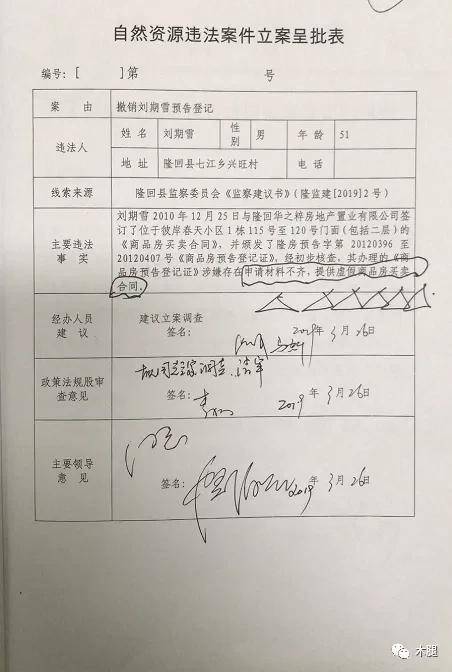 自然资源违法案件立案呈批表
编号：[ ]第 号
案 由 撤销刘期雪预告登记
违法人 姓 名 刘期雪 性别 男 年 龄 51
地 址 隆回县七江乡兴旺村 电 话
线索来源 隆回县监察委员会《监察建议书》（隆监建[2019]2 号）
主要违法事实
刘期雪 2010 年 12 月 25 日与隆回华之梓房地产置业有限公司签
订了位于彼岸春天小区 1 栋 115 号至 120 号门面（包括二层）的
《商品房买卖合同》，并颁发了隆房预告字第 20120396 至
20120407 号《商品房预告登记证》，经初步核查，其办理的《商
品房预告登记证》涉嫌存在申请材料不齐，提供虚假商品房买卖
合同。
经办人员建议 建议立案调查
签名： 2019年 3月26日
政策法规股审查意见
签名： 2019 年 3月26日
主要领导意见
签名： 2019 年 3月 26日
木腿